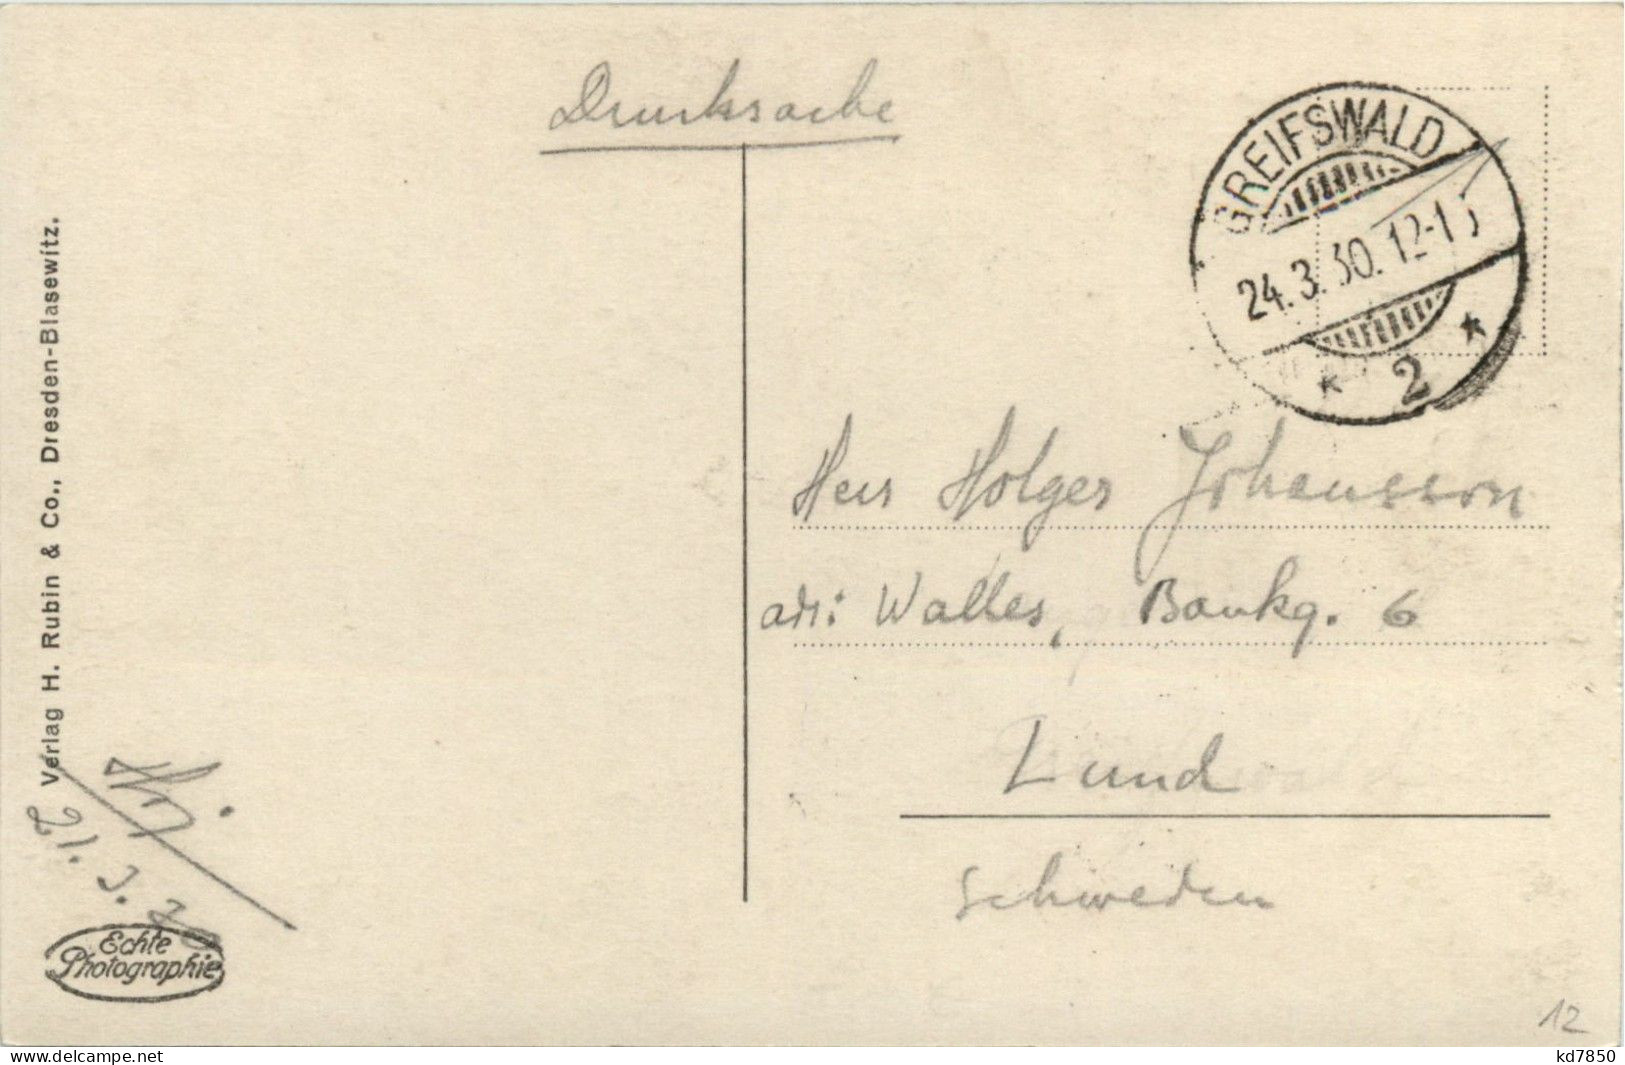 Drucksache
GREIFSWALD
24.3.30.12-1
* 2 *
Herr Holger Johansson
adr: Walles, Bankg. 6
Lund
Schweden
Verlag H. Rubin & Co., Dresden-Blasewitz.
21. 3. 30
Echte
Photographie
12
kd7850
www.delcampe.net